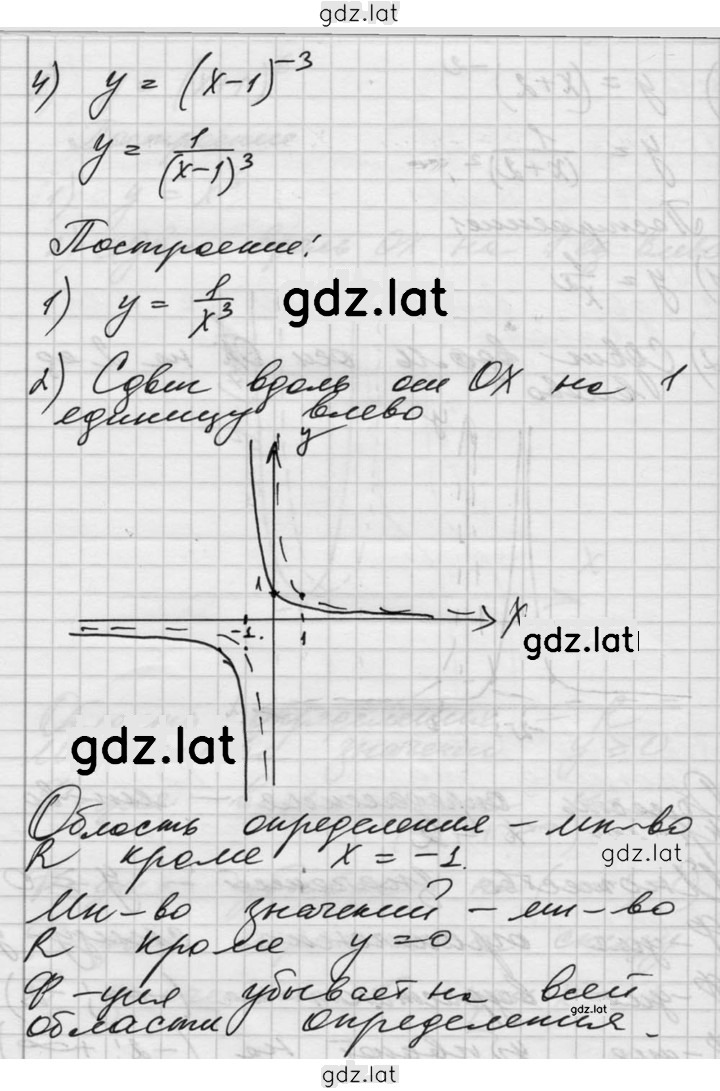 gdz.lat
4) y = (x-1)^-3
y = 1/(x-1)^3
Построение:
1) y = 1/x^3 gdz.lat
2) Сдвиг вдоль оси OX на 1
единицу влево
y
1
-1. 1 X
gdz.lat
gdz.lat
Область определения – мн-во
R кроме x = -1.
gdz.lat
Мн-во значений – мн-во
R кроме y=0
Ф-ция убывает на всей
gdz.lat
области определения.
gdz.lat